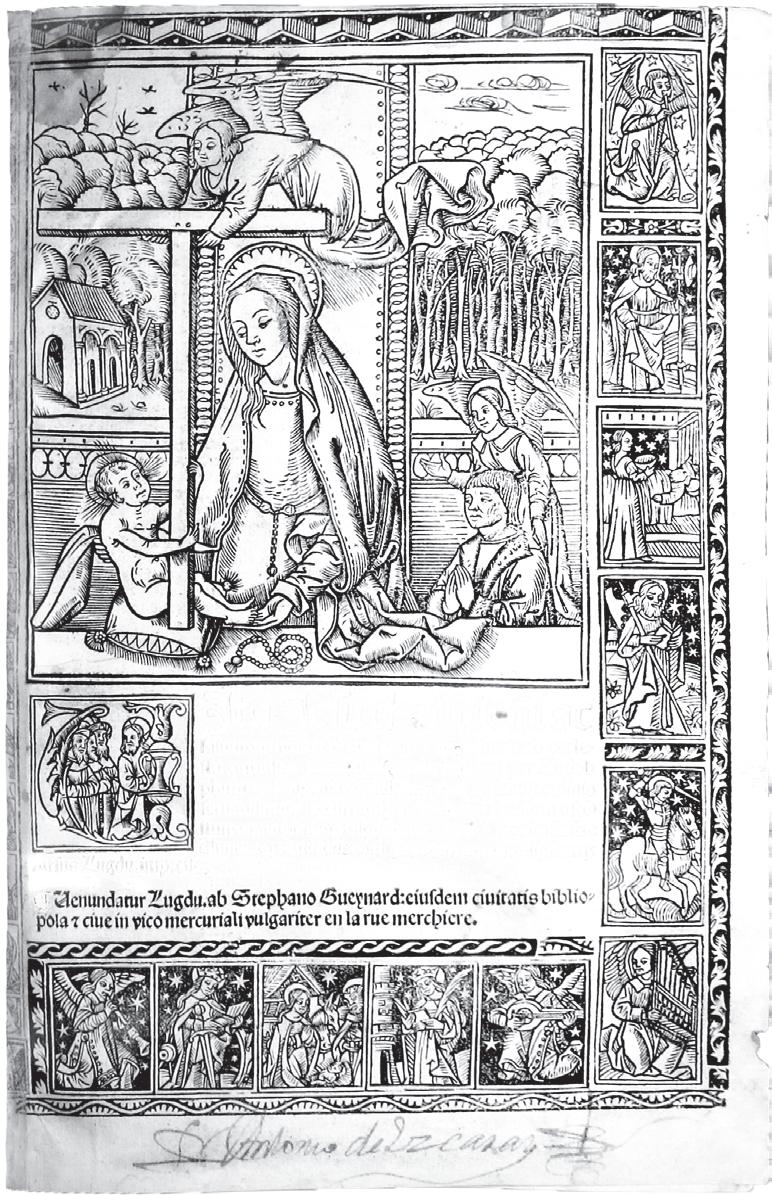 Uenundatur Lugdu.ab Stephano Gueynard:eiusdem ciuitatis biblio⸗
pola ⁊ ciue in vico mercuriali vulgariter en la rue merchiere.
Antonio de